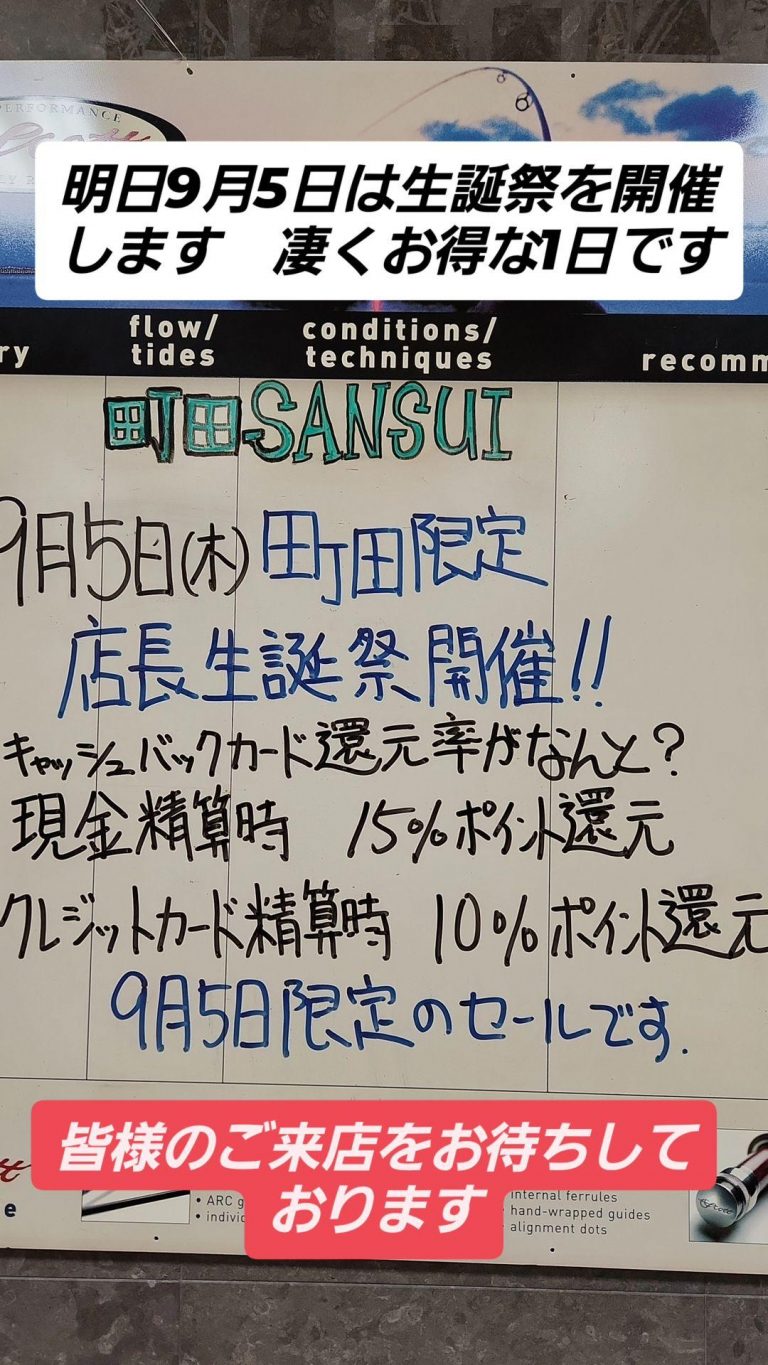 PERFORMANCE
明日9月5日は生誕祭を開催
します　凄くお得な1日です
ry
flow/
tides
conditions/
techniques
recomm
町田SANSUI
9月5日(木)町田限定
店長生誕祭開催!!
キャッシュバックカード還元率がなんと?
現金精算時 15%ポイント還元
クレジットカード精算時 10%ポイント還元
9月5日限定のセールです.
皆様のご来店をお待ちして
おります
e
• ARC g
• indivi
internal ferrules
hand-wrapped guides
alignment dots